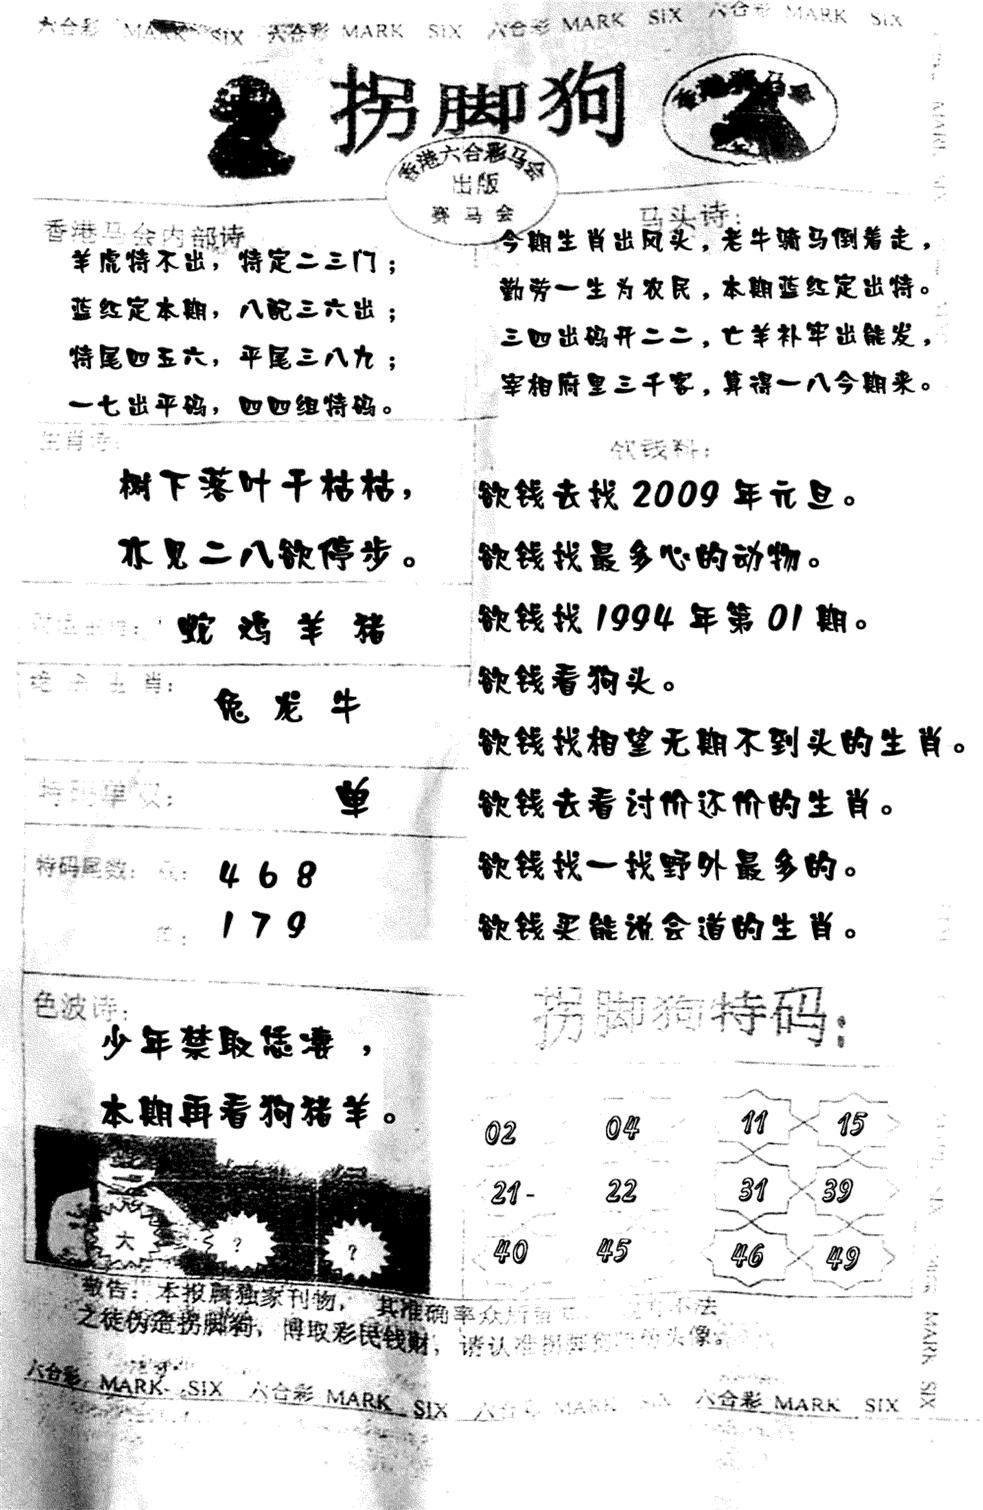 六合彩 MARK SIX 六合彩 MARK SIX 六合彩 MARK SIX 六合彩 MARK SIX
拐脚狗
香港赛马会
香港六合彩马会
出版
赛马会
香港马会内部诗
羊虎特不出，特定二三门；
蓝红定本期，八配三六出；
特尾四五六，平尾三八九；
一七出平码，四四组特码。
马头诗：
今期生肖出风头，老牛骑马倒着走，
勤劳一生为农民，本期蓝红定出特。
三四出码开二二，亡羊补牢出能发，
宰相府里三千客，算得一八今期来。
生肖诗：
树下落叶干枯枯，
亦见二八欲停步。
蛇 鸡 羊 猪
绝杀生肖：
兔 龙 牛
特码单双：
单
特码尾数：双： 4 6 8
单： 1 7 9
欲钱料：
欲钱去找 2009 年元旦。
欲钱找最多心的动物。
欲钱找 1994 年第 01 期。
欲钱看狗头。
欲钱找相望无期不到头的生肖。
欲钱去看讨价还价的生肖。
欲钱找一找野外最多的。
欲钱买能说会道的生肖。
色波诗：
少年禁取恁凄，
本期再看狗猪羊。
大 ? ?
拐脚狗特码：
02 04 11 15
21- 22 31 39
40 45 46 49
敬告：本报属独家刊物，其准确率众所
不法
之徒伪造拐脚狗，博取彩民钱财，请认准拐脚狗
头像。
六合彩 MARK SIX 六合彩 MARK SIX 六合彩 MARK SIX 六合彩 MARK SIX
MARK SIX